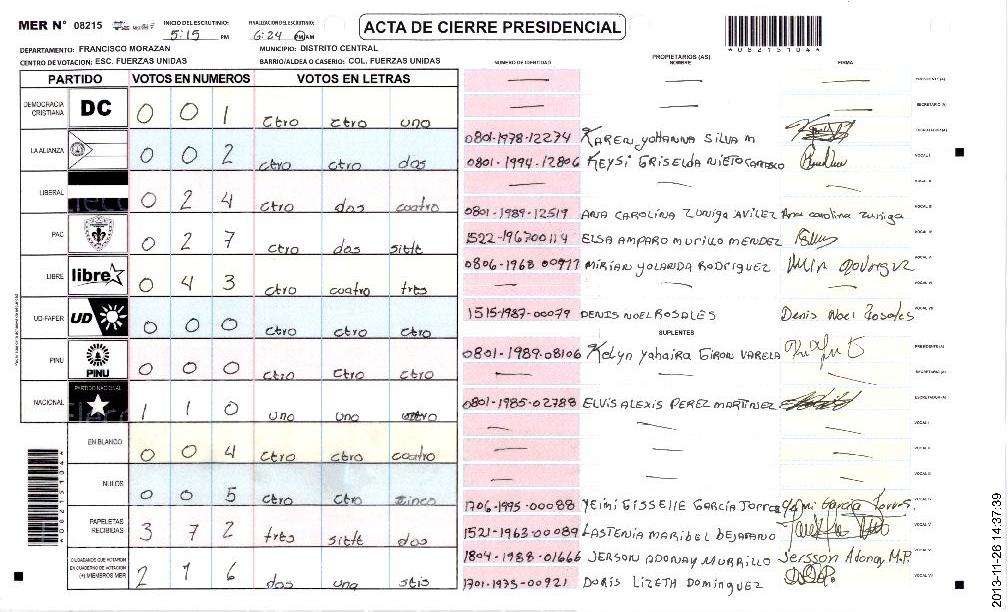 MER N° 08215 INICIO DEL ESCRUTINIO: 5:15 PM FINALIZACION ESCRUTINIO: 6:24 PM AM ACTA DE CIERRE PRESIDENCIAL
082151044
DEPARTAMENTO: FRANCISCO MORAZAN MUNICIPIO: DISTRITO CENTRAL
CENTRO DE VOTACION: ESC. FUERZAS UNIDAS BARRIO/ALDEA O CASERIO: COL. FUERZAS UNIDAS
PARTIDO VOTOS EN NUMEROS VOTOS EN LETRAS
DEMOCRACIA CRISTIANA DC 0 0 1 cero cero uno
LA ALIANZA 0 0 2 cero cero dos
LIBERAL 0 2 4 cero dos cuatro
PAC 0 2 7 cero dos siete
LIBRE libre 0 4 3 cero cuatro tres
UD-FAPER UD 0 0 0 cero cero cero
PINU PINU 0 0 0 cero cero cero
NACIONAL PARTIDO NACIONAL 1 1 0 uno uno cero
EN BLANCO 0 0 4 cero cero cuatro
NULOS 0 0 5 cero cero cinco
PAPELETAS RECIBIDAS 3 7 2 tres siete dos
CIUDADANOS QUE VOTARON EN CUADERNO DE VOTACION (+) MIEMBROS MER 2 1 6 dos uno seis
NUMERO DE IDENTIDAD PROPIETARIOS (AS) NOMBRE FIRMA
— — — PRESIDENTE (A)
— — — SECRETARIO (A)
0801-1978-12274 KAREN yOHANNA SILVA M ESCRUTADOR (A)
0801-1994-12806 KEYSI GRISELDA NIETO CARRASCO VOCAL I
— — — VOCAL II
0801-1989-12519 ANA CAROLINA ZUNIGA AVILEZ Ana carolina zuniga VOCAL III
1522-196700114 ELSA AMPARO MURILLO MENDEZ VOCAL IV
0806-1968 00977 MIRIAN YOLANDA RODRIGUEZ VOCAL V
— — — VOCAL VI
1515-1987-00079 DENIS NOEL ROSALES Denis Noel Rosales VOCAL VII
SUPLENTES
0801-1989-08106 Kelyn yahaira GIRON VARELA PRESIDENTE (A)
— — — SECRETARIO (A)
0801-1985-02788 ELVIS ALEXIS PEREZ MARTINEZ ESCRUTADOR (A)
— — — VOCAL I
— — — VOCAL II
— — VOCAL III
1706-1995-00088 YEIMI GISSELLE GARCÍA TORRES VOCAL IV
1521-1963-00089 LASTENIA MARIBEL BEJARANO VOCAL V
1804-1988-01666 JERSON ADONAY MURRILLO Jersson Adonay M.P. VOCAL VI
1701-1975-00921 DORIS LIZETH DOMINGUEZ VOCAL VII
2013-11-26 14:37:39